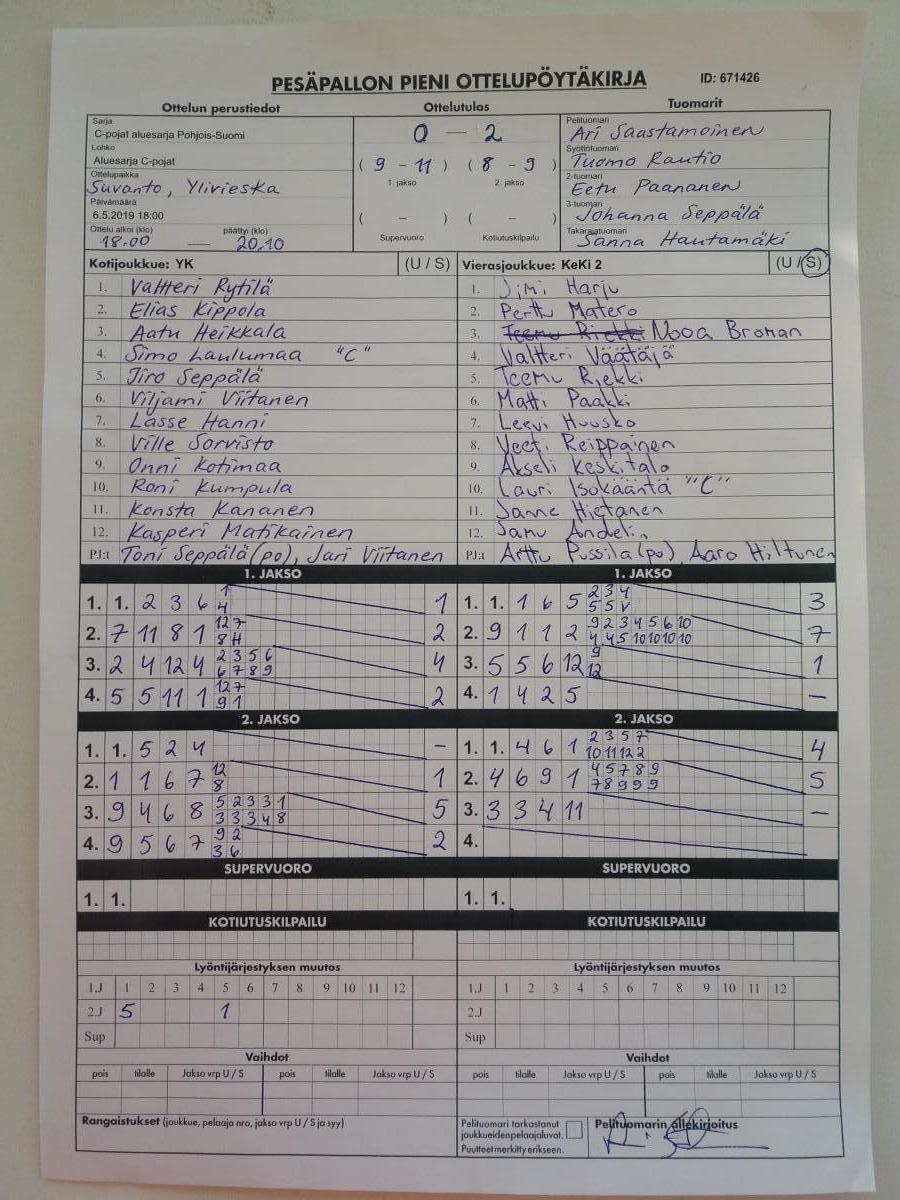 PESÄPALLON PIENI OTTELUPÖYTÄKIRJA ID: 671426
Ottelun perustiedot Ottelutulos Tuomarit
Sarja
C-pojat aluesarja Pohjois-Suomi
Lohko
Aluesarja C-pojat
Ottelupaikka
Suvanto, Ylivieska
Päivämäärä
6.5.2019 18:00
Ottelu alkoi (klo) päättyi (klo)
18.00 — 20.10
0 — 2
( 9 - 11 ) ( 8 - 9 )
1. jakso 2. jakso
( - ) ( - )
Supervuoro Kotiutuskilpailu
Pelituomari
Ari Saastamoinen
Syöttötuomari
Tuomo Rautio
2-tuomari
Eetu Paananen
3-tuomari
Johanna Seppälä
Takarajatuomari
Sanna Hautamäki
Kotijoukkue: YK (U / S)
1. Valtteri Rytilä
2. Elias Kippola
3. Aatu Heikkala
4. Simo Laulumaa "C"
5. Jiro Seppälä
6. Viljami Viitanen
7. Lasse Hanni
8. Ville Sorvisto
9. Onni Kotimaa
10. Roni Kumpula
11. Konsta Kananen
12. Kasperi Matikainen
PJ:t Toni Seppälä (po), Jari Viitanen
Vierasjoukkue: KeKi 2 (U / S)
1. Jimi Harju
2. Perttu Matero
3. Teemu Riekki Nooa Broman
4. Valtteri Väätäjä
5. Teemu Riekki
6. Matti Paakki
7. Leevi Huusko
8. Veeti Reippainen
9. Akseli Keskitalo
10. Lauri Isokääntä "C"
11. Janne Hietanen
12. Samu Andelin
PJ:t Arttu Pussila (po), Aaro Hiltunen
1. JAKSO
1. 1. 2 3 6 1 1
4
2. 7 11 8 1 12 7 2
8 H
3. 2 4 12 4 2 3 5 6 4
6 7 8 9
4. 5 5 11 1 12 7 2
9 1
1. JAKSO
1. 1. 1 6 5 2 3 4 3
5 5 V
2. 9 1 1 2 9 2 3 4 5 6 10 7
4 4 5 10 10 10 10
3. 5 5 6 12 9 1
12
4. 1 4 2 5 —
2. JAKSO
1. 1. 5 2 4 —
2. 1 1 6 7 12 1
8
3. 9 4 6 8 5 2 3 3 1 5
3 3 3 4 8
4. 9 5 6 7 9 2 2
3 6
2. JAKSO
1. 1. 4 6 1 2 3 5 7 4
10 11 12 2
2. 4 6 9 1 4 5 7 8 9 5
7 8 9 9 9
3. 3 3 4 11 —
4.
SUPERVUORO SUPERVUORO
1. 1. 1. 1.
KOTIUTUSKILPAILU KOTIUTUSKILPAILU
Lyöntijärjestyksen muutos Lyöntijärjestyksen muutos
1.J 1 2 3 4 5 6 7 8 9 10 11 12 1.J 1 2 3 4 5 6 7 8 9 10 11 12
2.J 5 1 2.J
Sup Sup
Vaihdot Vaihdot
pois tilalle Jakso vrp U / S pois tilalle Jakso vrp U / S pois tilalle Jakso vrp U / S pois tilalle Jakso vrp U / S
Rangaistukset (joukkue, pelaaja nro, jakso vrp U / S ja syy)
Pelituomari tarkastanut
joukkueidenpelaajaluvat.
Puutteet merkitty erikseen.
Pelituomarin allekirjoitus